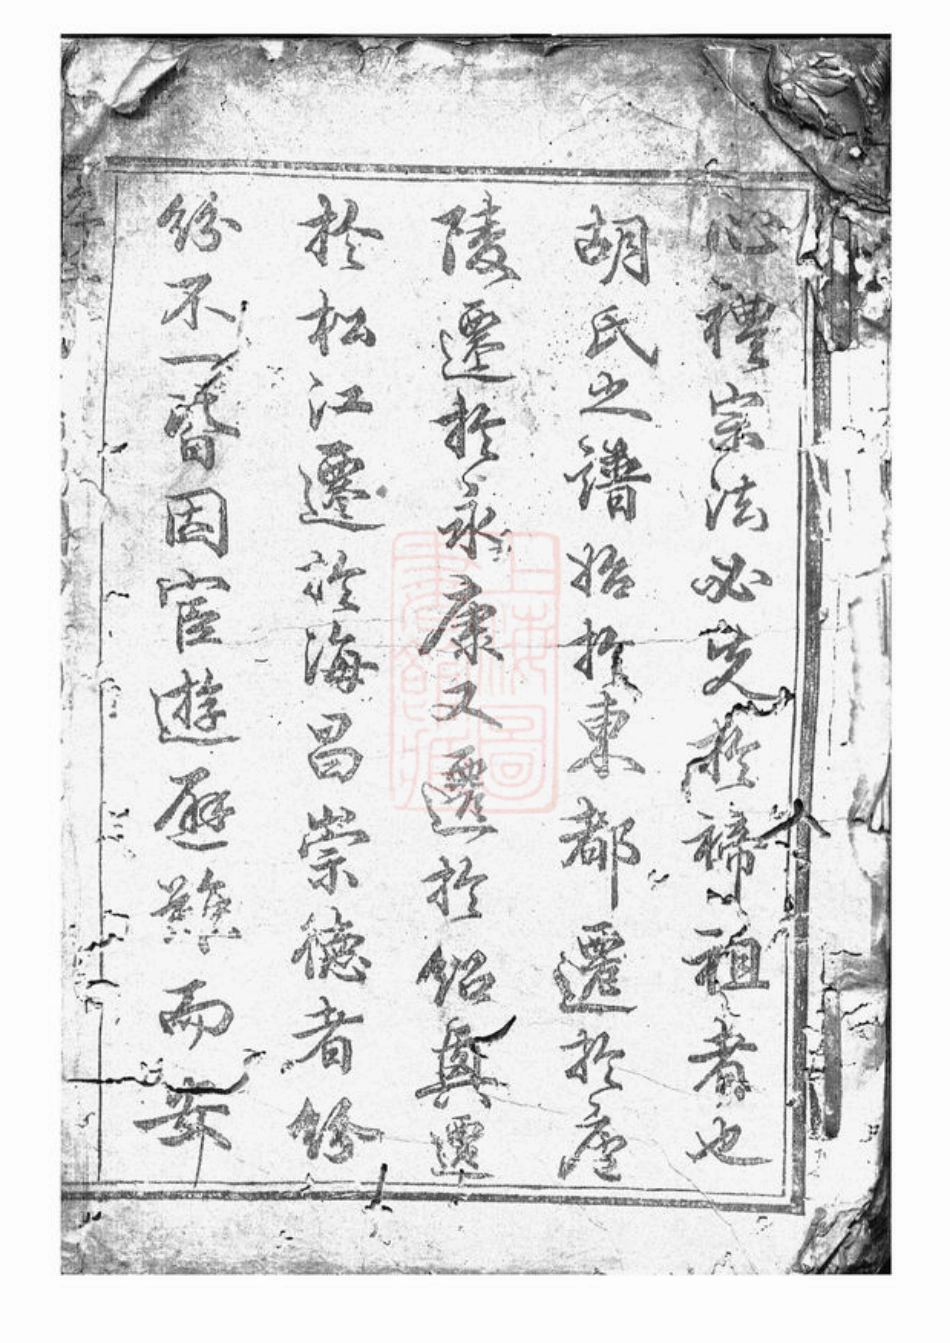 心禮宗法必先於禘祖者也
胡氏之譜始於東都遷於廬
陵遷於永康又遷於紹興遷
於松江遷於海昌崇德者紛
紛不一皆因宦遊避難而安
上海圖書館藏